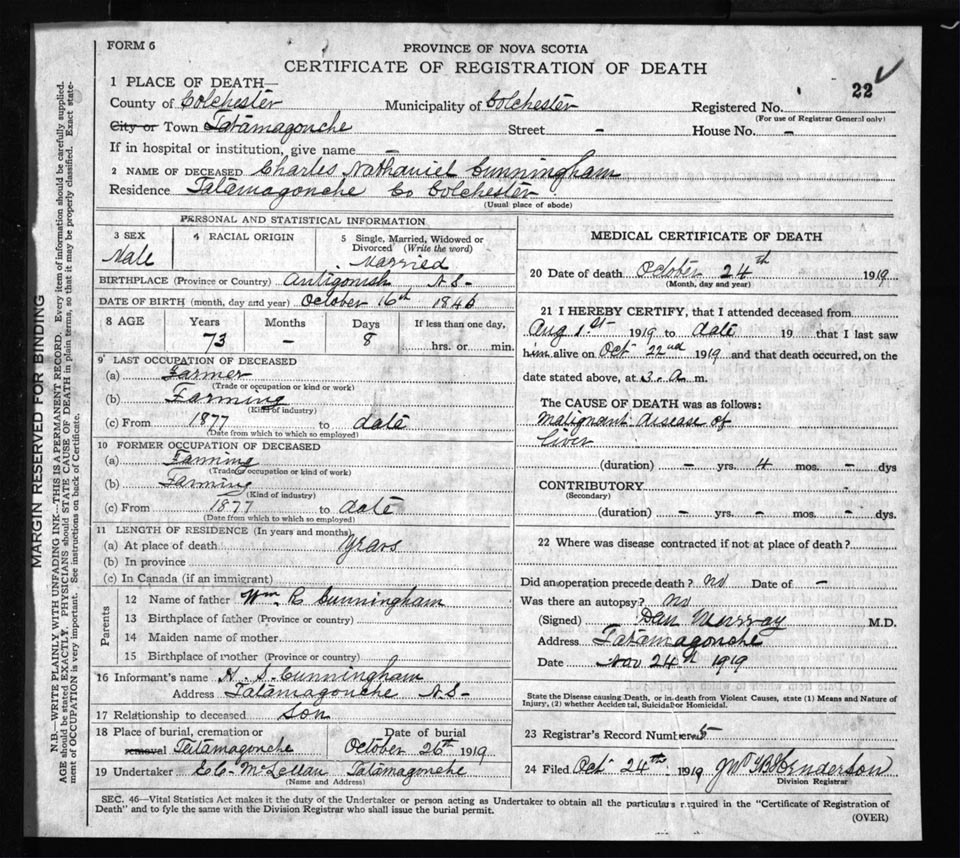 FORM 6
PROVINCE OF NOVA SCOTIA
CERTIFICATE OF REGISTRATION OF DEATH
22
1 PLACE OF DEATH—
County of Colchester Municipality of Colchester Registered No.
(For use of Registrar General only)
City or Town Tatamagouche Street - House No. -
If in hospital or institution, give name -
2 NAME OF DECEASED Charles Nathaniel Cunningham
Residence Tatamagouche Co Colchester
(Usual place of abode)
PERSONAL AND STATISTICAL INFORMATION
3 SEX Male
4 RACIAL ORIGIN
5 Single, Married, Widowed or Divorced (Write the word)
Married
BIRTHPLACE (Province or Country) Antigonish N S-
DATE OF BIRTH (month, day and year) October 16th 1846
8 AGE Years Months Days If less than one day,
73 - 8 hrs. or min.
9 LAST OCCUPATION OF DECEASED
(a) Farmer
(Trade or occupation or kind or work)
(b) Farming
(Kind of industry)
(c) From 1877 to date
(Date from which to which so employed)
10 FORMER OCCUPATION OF DECEASED
(a) Farming
(Trade or occupation or kind or work)
(b) Farming
(Kind of industry)
(c) From 1877 to date
(Date from which to which so employed)
11 LENGTH OF RESIDENCE (In years and months)
(a) At place of death years
(b) In province
(c) In Canada (if an immigrant)
Parents
12 Name of father Wm R Cunningham
13 Birthplace of father (Province or country)
14 Maiden name of mother
15 Birthplace of mother (Province or country)
16 Informant's name H. S. Cunningham
Address Tatamagouche N S-
17 Relationship to deceased Son
18 Place of burial, cremation or removal Date of burial
Tatamagouche October 26th 1919
19 Undertaker E C- McLellan Tatamagouche
(Name and Address)
MEDICAL CERTIFICATE OF DEATH
20 Date of death October 24th 1919
(Month, day and year)
21 I HEREBY CERTIFY, that I attended deceased from
Aug 1st 1919 to date 19 that I last saw
him alive on Oct 22nd 1919 and that death occurred, on the
date stated above, at 3. a m.
The CAUSE OF DEATH was as follows:
Malignant disease of
liver
(duration) - yrs. 4 mos. - dys
CONTRIBUTORY
(Secondary)
(duration) - yrs. - mos. - dys.
22 Where was disease contracted if not at place of death?
Did an operation precede death? no Date of -
Was there an autopsy? No
(Signed) Dan Murray M.D.
Address Tatamagouche
Date Nov 24th 1919
State the Disease causing Death, or in death from Violent Causes, state (1) Means and Nature of
Injury, (2) whether Accidental, Suicidal or Homicidal.
23 Registrar's Record Number 5
24 Filed Oct 24th 1919 Jno Henderson
Division Registrar
SEC. 46—Vital Statistics Act makes it the duty of the Undertaker or person acting as Undertaker to obtain all the particulars required in the "Certificate of Registration of
Death" and to fyle the same with the Division Registrar who shall issue the burial permit.
(OVER)
MARGIN RESERVED FOR BINDING
N.B.—WRITE PLAINLY WITH UNFADING INK—THIS IS A PERMANENT RECORD. Every item of information should be carefully supplied.
AGE should be stated EXACTLY. PHYSICIANS should STATE CAUSE OF DEATH in plain terms, so that it may be properly classified. Exact state-
ment of OCCUPATION is very important. See instructions on back of Certificate.